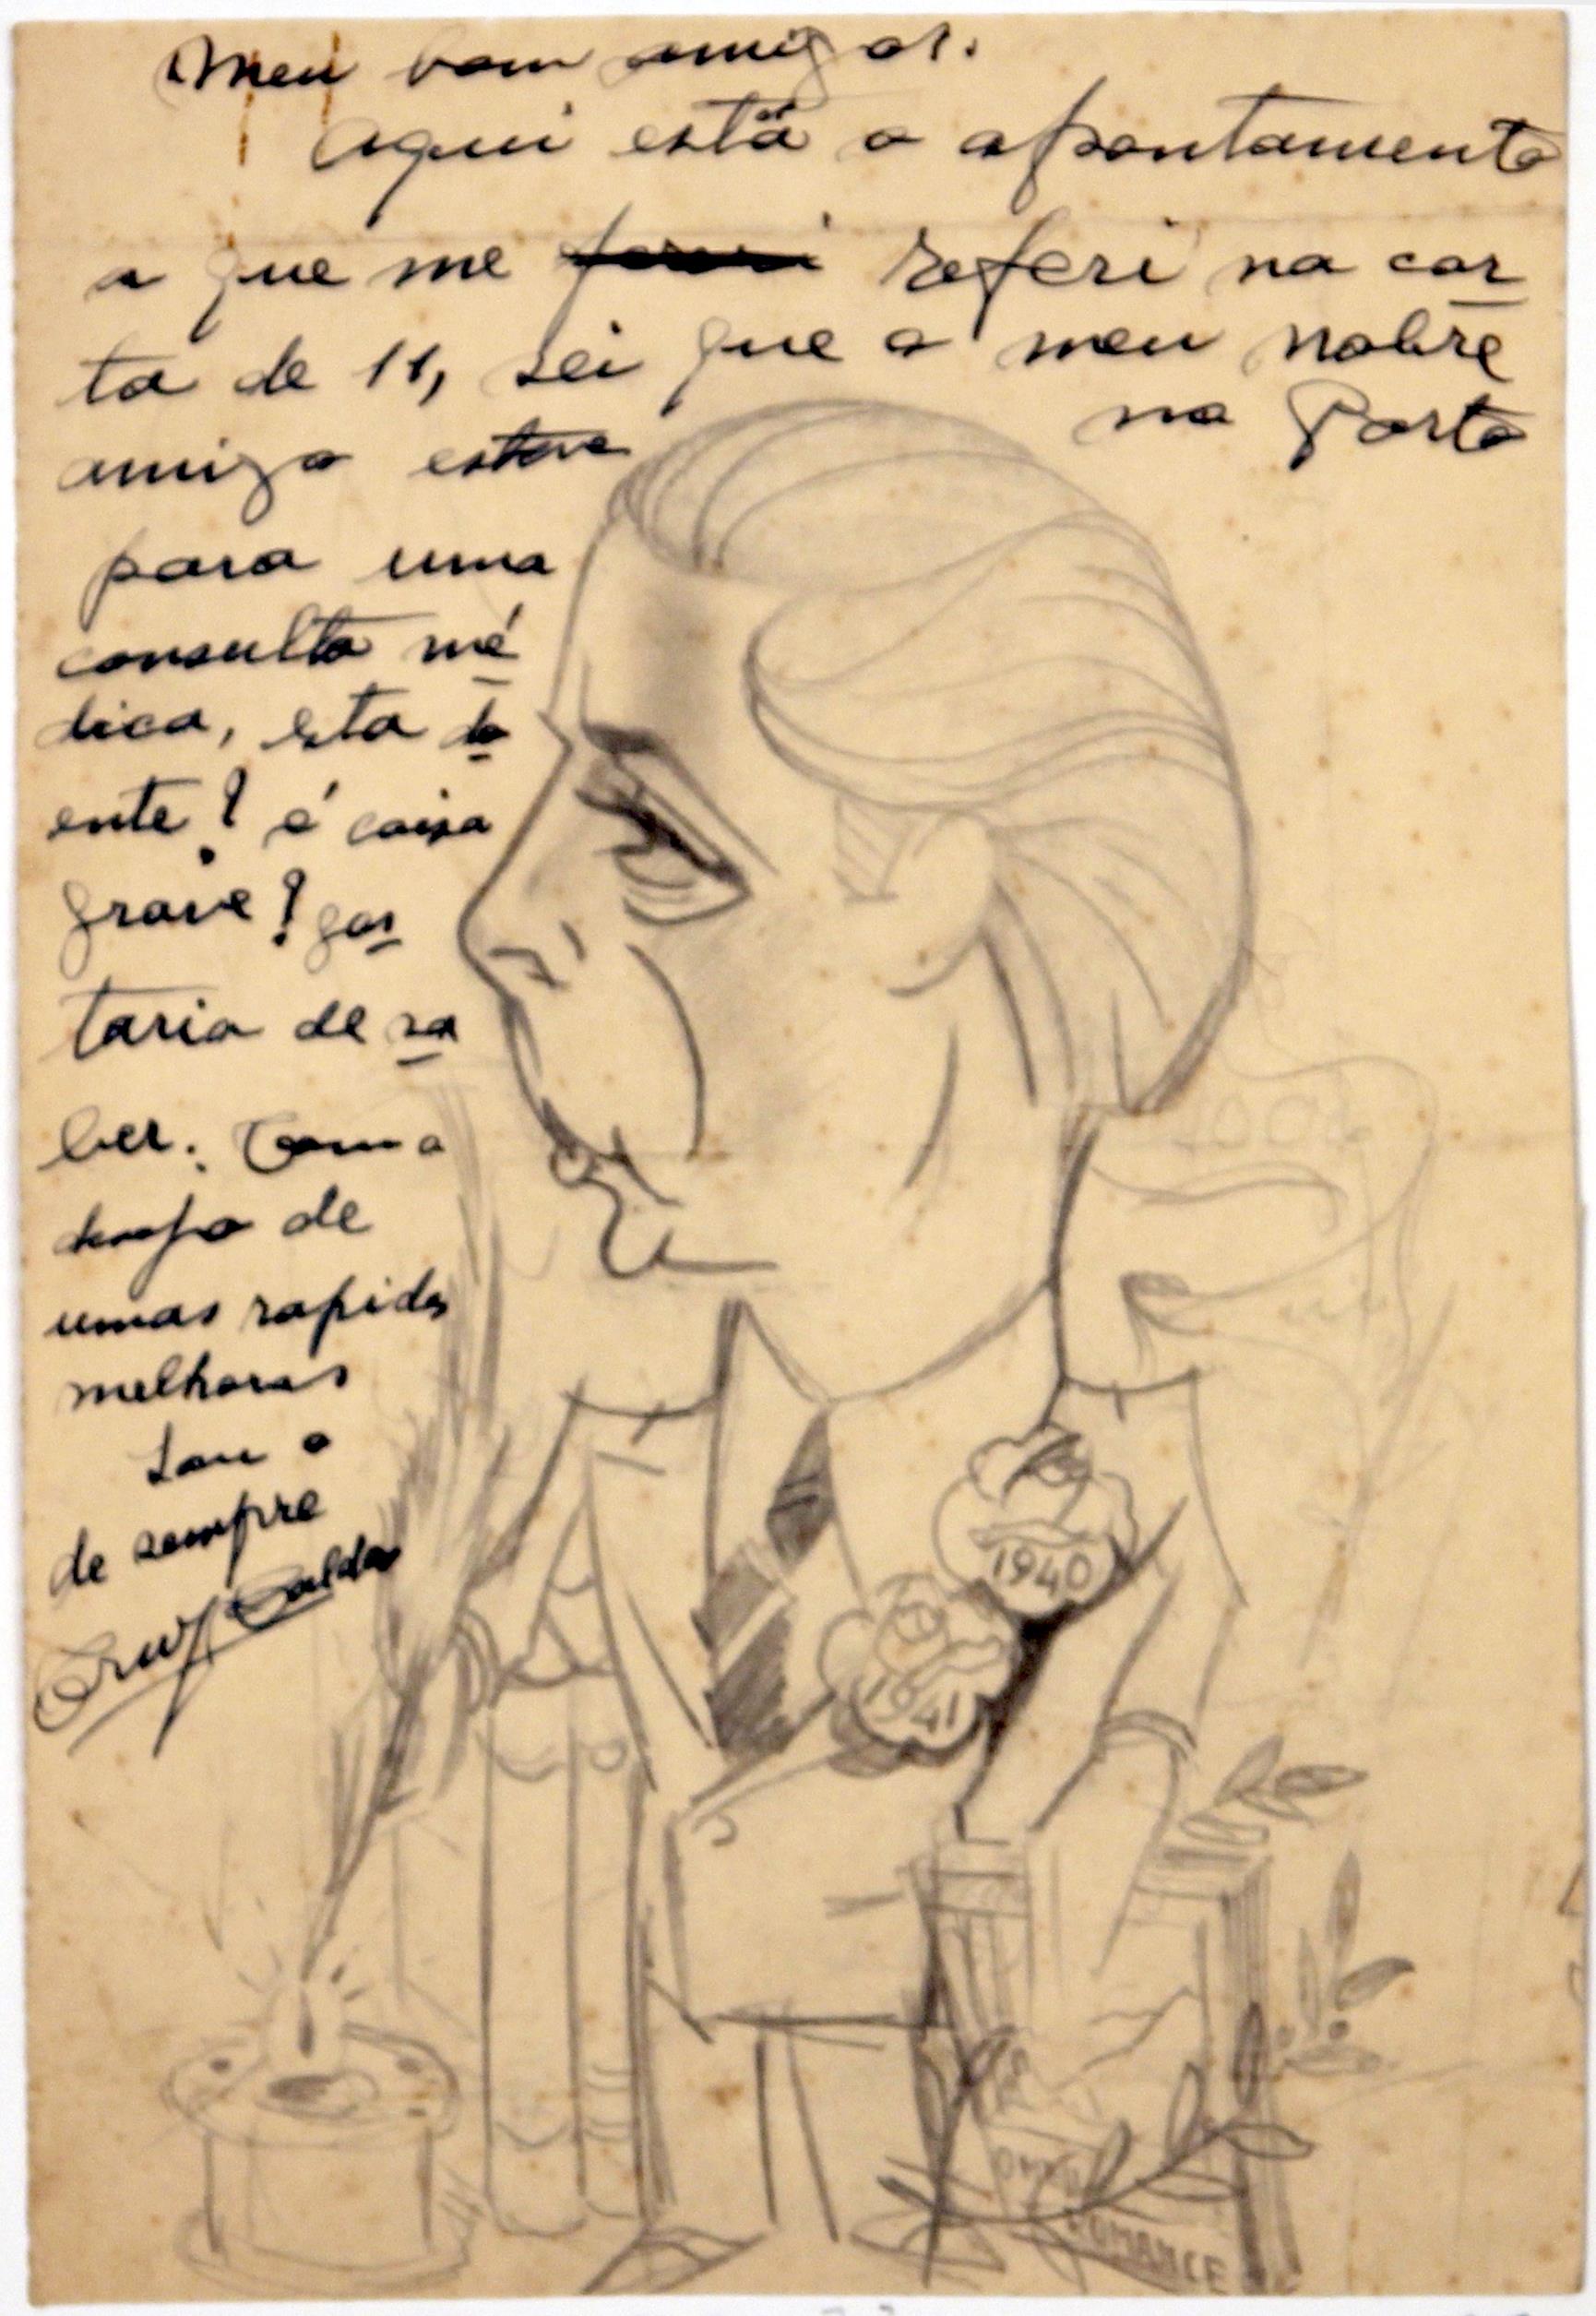 Meu bom amigo.
aqui está o apontamento
a que me referi na car
ta de 11, sei que o meu nobre
amigo esteve no Porto
para uma
consulta mé
dica, esta do
ente? é coisa
grave? gos
taria de sa
ber. Com o
desejo de
umas rapidas
melhoras
Sou o
de sempre
Cruz Caldas
1940
1941
O MEU
ROMANCE